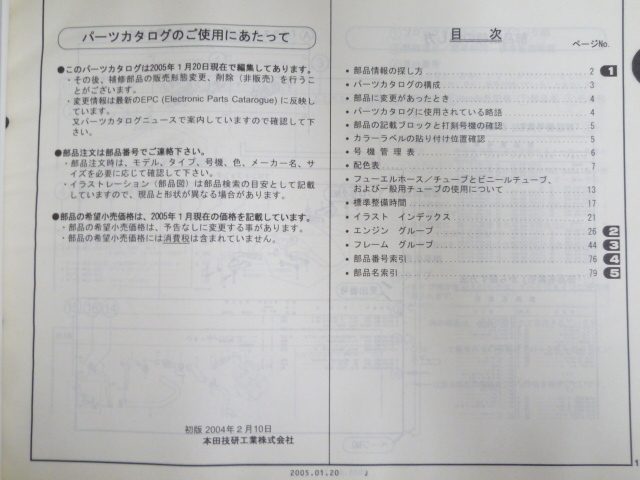 パーツカタログのご使用にあたって
●このパーツカタログは2005年1月20日現在で編集してあります。
・その後、補修部品の販売形態変更、削除(非販売)を行うこ
とがございます。
・変更情報は最新のEPC (Electronic Parts Catarogue) に反映し
ています。
又パーツカタログニュースで案内していますので確認して下
さい。
●部品注文は部品番号でご連絡下さい。
・部品注文時は、モデル、タイプ、号機、色、メーカー名、サ
イズを必要に応じて確認して下さい。
・イラストレーション(部品図)は部品検索の目安として記載
していますので、現品と形状が異なる場合があります。
●部品の希望小売価格は、2005年1月現在の価格を記載しています。
・部品の希望小売価格は、予告なしに変更する事があります。
・部品の希望小売価格には消費税は含まれていません。
初版 2004年2月10日
本田技研工業株式会社
目 次
ページNo.
・部品情報の探し方 2 1
・パーツカタログの構成 3
・部品に変更があったとき 4
・パーツカタログに使用されている略語 4
・部品の記載ブロックと打刻号機の確認 5
・カラーラベルの貼り付け位置確認 5
・号機管理表 6
・配色表 7
・フューエルホース/チューブとビニールチューブ、
および一般用チューブの使用について 13
・標準整備時間 17
・イラスト インデックス 21
・エンジン グループ 26 2
・フレーム グループ 44 3
・部品番号索引 76 4
・部品名索引 79 5
2005.01.20